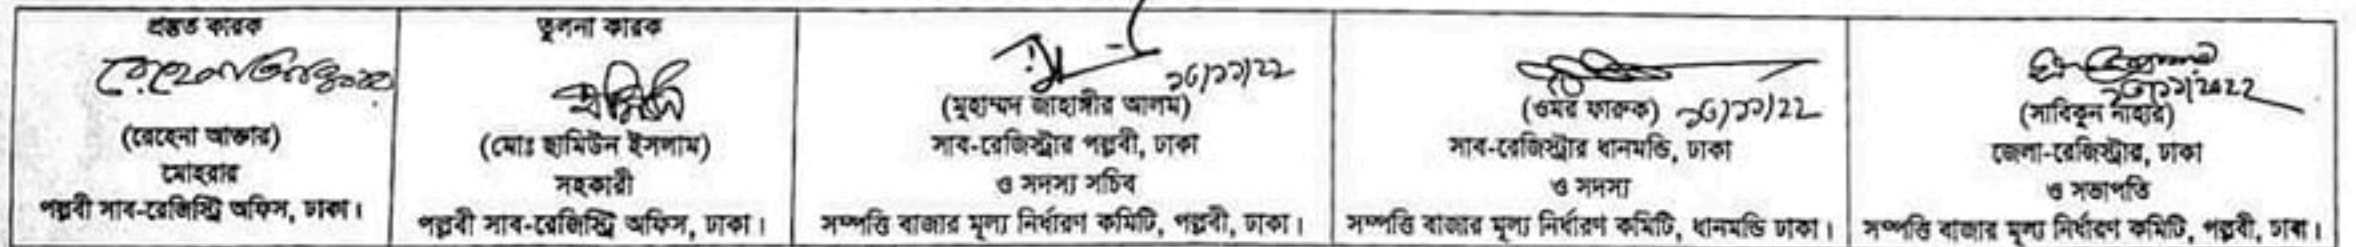 প্রস্তুত কারক
রেহেনা আক্তার
(রেহেনা আক্তার)
মোহরার
পল্লবী সাব-রেজিস্ট্রি অফিস, ঢাকা।
তুলনা কারক
(মোঃ হামিউন ইসলাম)
সহকারী
পল্লবী সাব-রেজিস্ট্রি অফিস, ঢাকা।
(মুহাম্মদ জাহাঙ্গীর আলম)
সাব-রেজিস্ট্রার পল্লবী, ঢাকা
ও সদস্য সচিব
সম্পত্তি বাজার মূল্য নির্ধারণ কমিটি, পল্লবী, ঢাকা।
(ওমর ফারুক)
সাব-রেজিস্ট্রার ধানমন্ডি, ঢাকা
ও সদস্য
সম্পত্তি বাজার মূল্য নির্ধারণ কমিটি, ধানমন্ডি ঢাকা।
(সাবিকুন নাহার)
জেলা-রেজিস্ট্রার, ঢাকা
ও সভাপতি
সম্পত্তি বাজার মূল্য নির্ধারণ কমিটি, পল্লবী, ঢাকা।